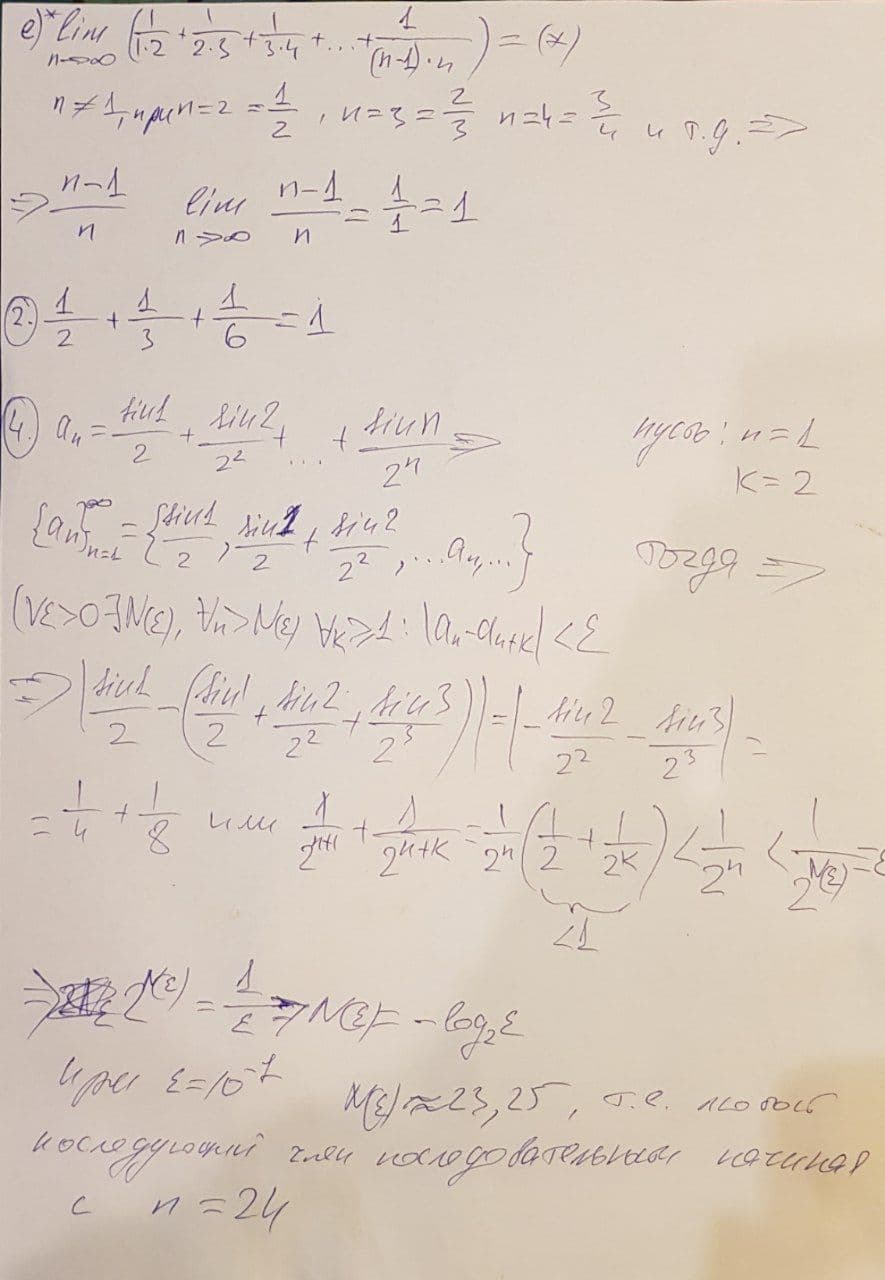 е)* lim n→∞ (1/1·2 + 1/2·3 + 1/3·4 + ... + 1/(n-1)·n) = (*)
n ≠ 1, при n=2 = 1/2 , n=3 = 2/3 n=4 = 3/4 и т.д. ⇒
⇒ n-1/n lim n→∞ n-1/n = 1/1 = 1
2. 1/2 + 1/3 + 1/6 = 1
4. aₙ = sin1/2 + sin2/2² + ... + sin n/2ⁿ ⇒ пусть: n=1
k=2
{aₙ}ₙ₌₁^∞ = {sin1/2, sin1/2 + sin2/2², ...aₙ,...} тогда ⇒
(∀ε>0 ∃N(ε), ∀n>N(ε) ∀k⩾1: |aₙ-aₙ₊ₖ| < ε
⇒ |sin1/2 - (sin1/2 + sin2/2² + sin3/2³)| = |-sin2/2² - sin3/2³| =
= 1/4 + 1/8 или 1/2ⁿ⁺¹ + 1/2ⁿ⁺ᵏ = 1/2ⁿ (1/2 + 1/2ᵏ) < 1/2ⁿ < 1/2^N(ε) = ε
<1
⇒ 2^N(ε) = 1/ε ⇒ N(ε) = -log₂ε
при ε=10⁻⁷ N(ε) ≈ 23,25, т.е. любой
последующий член последовательности начиная
с n = 24